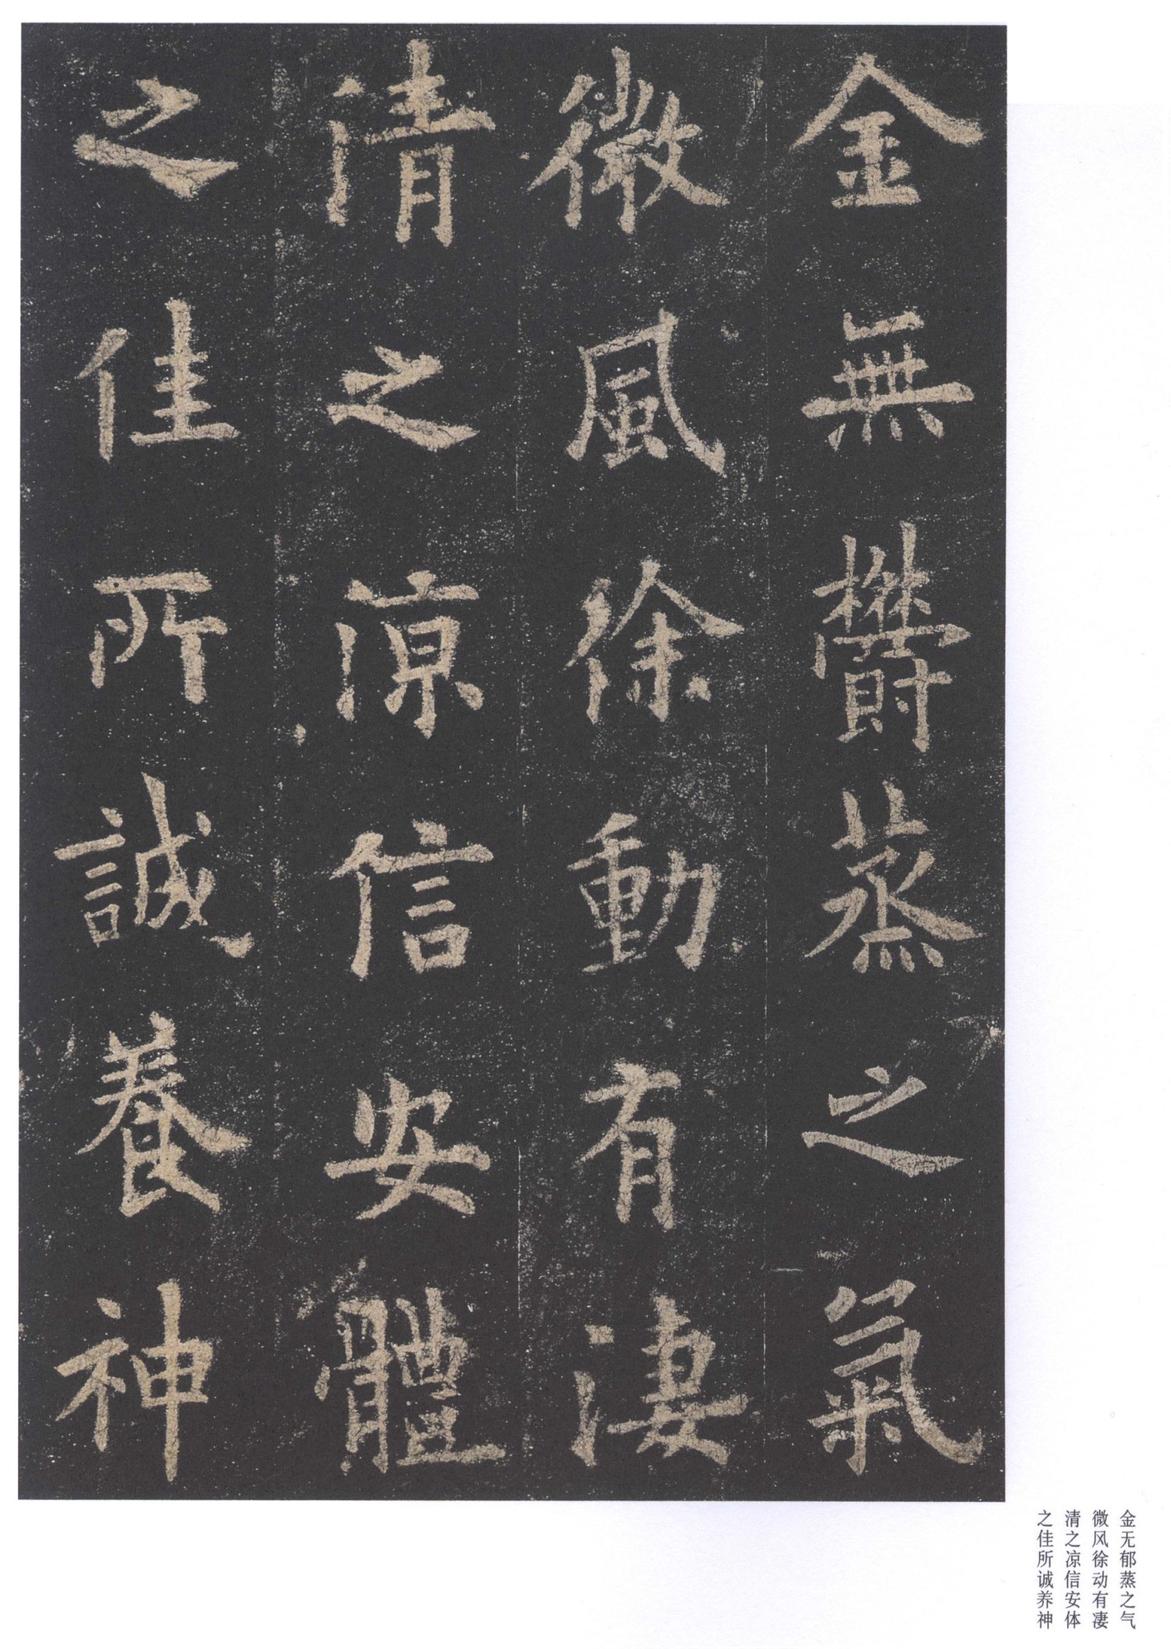 金無欝蒸之氣
微風徐動有淒
清之涼信安體
之佳所誠養神
金无郁蒸之气
微风徐动有凄
清之凉信安体
之佳所诚养神